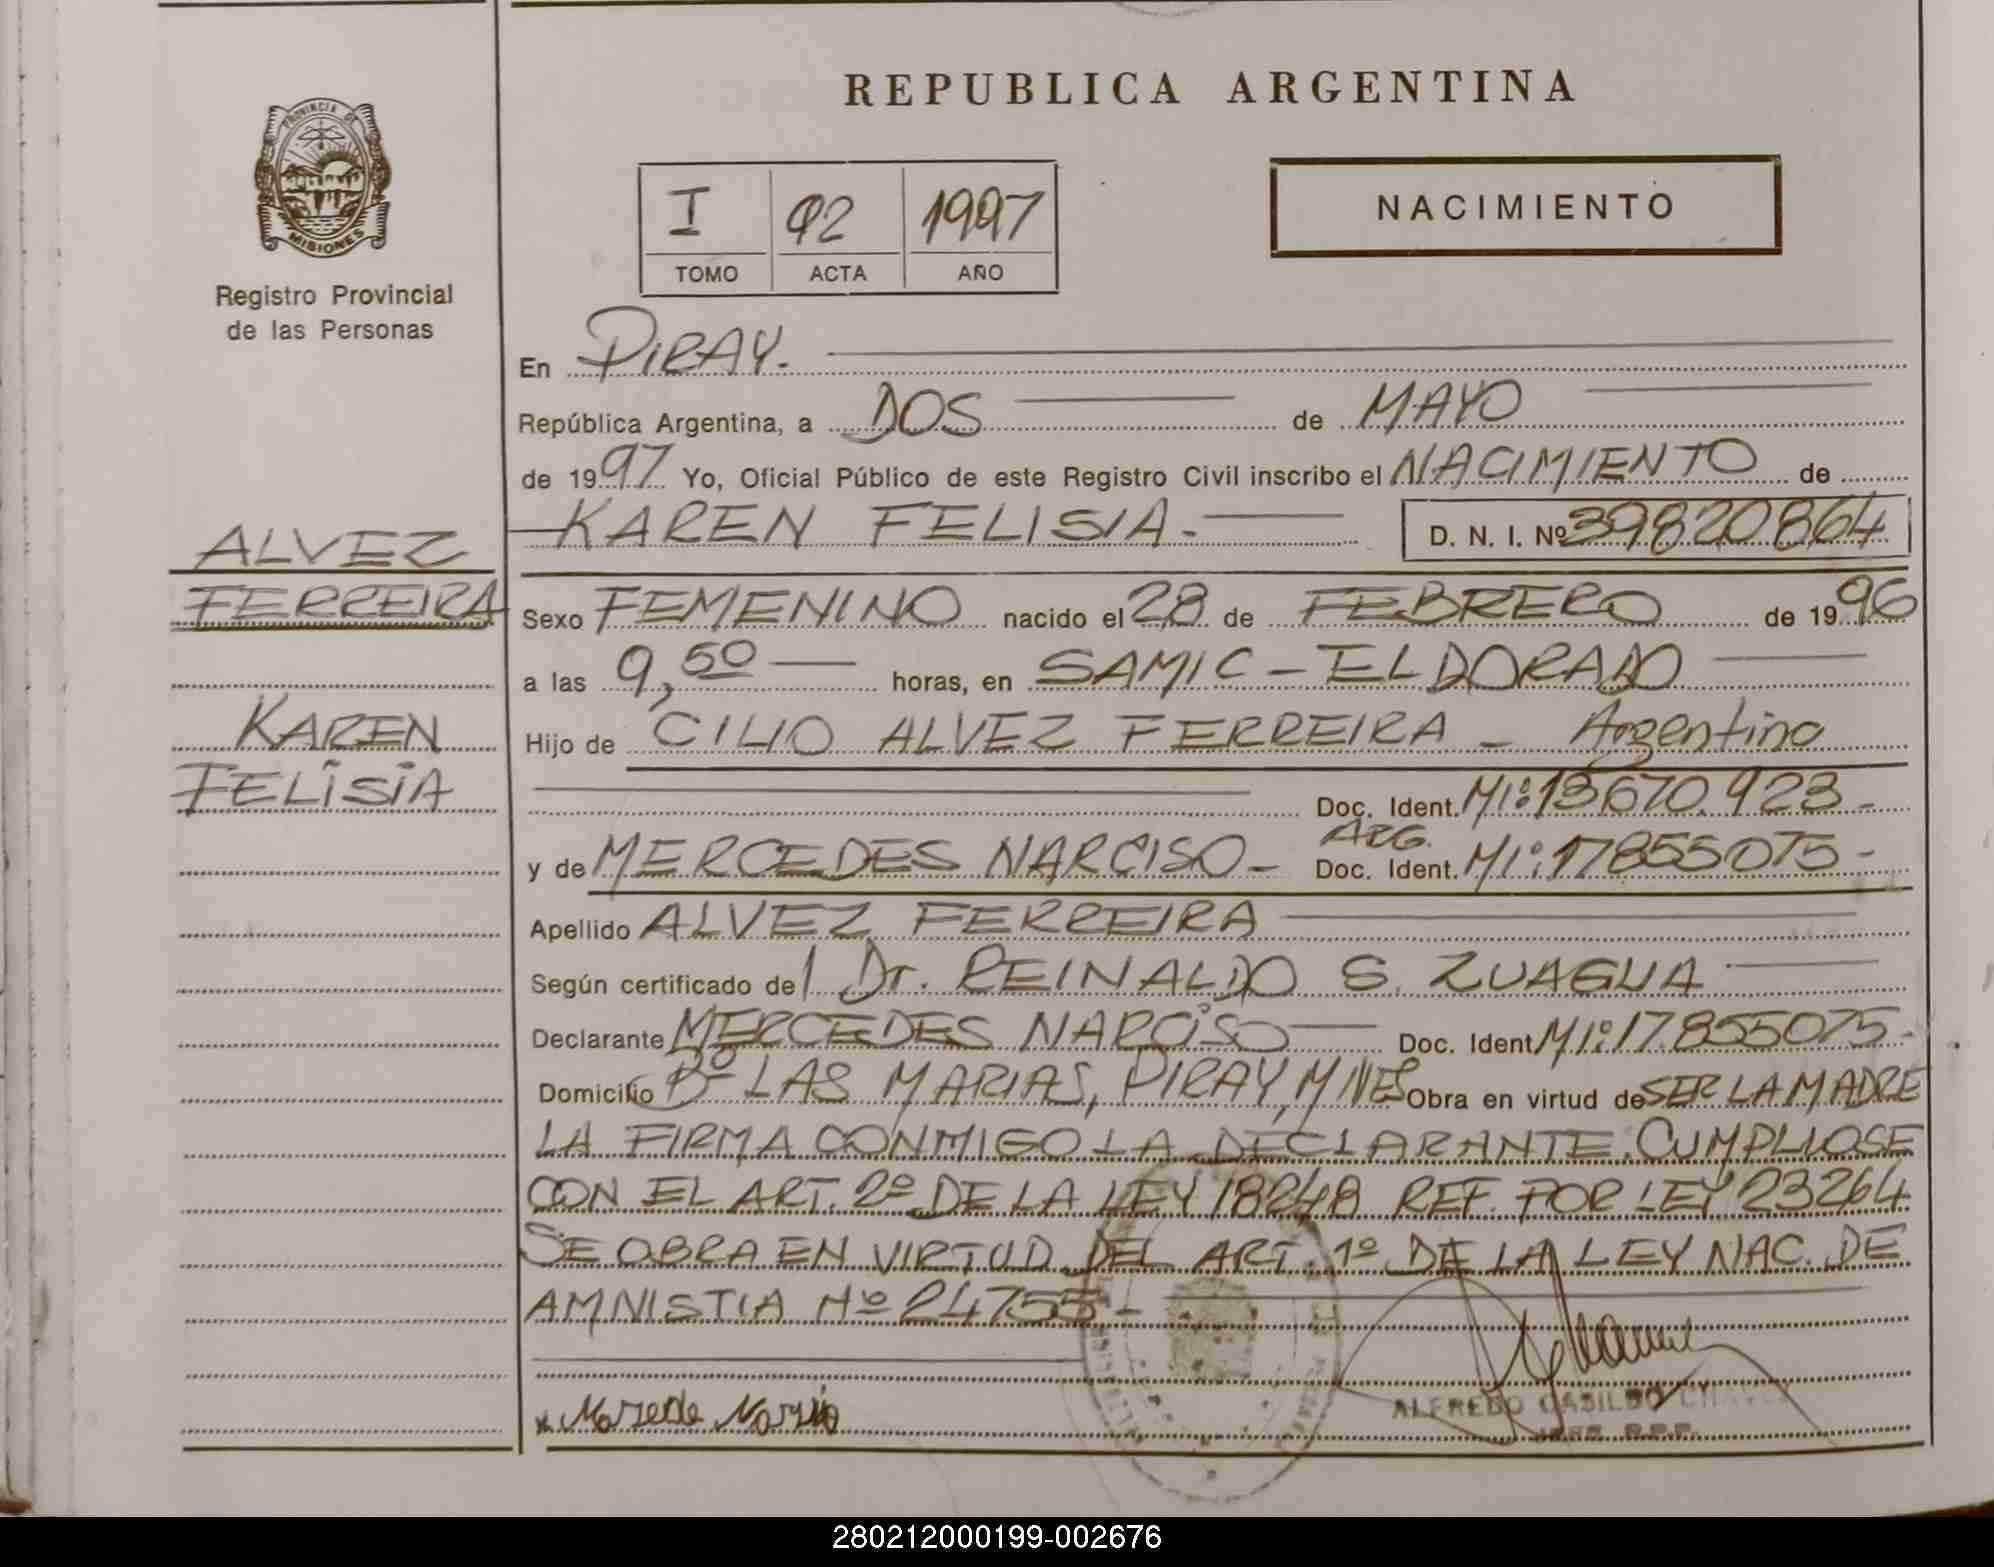 REPUBLICA ARGENTINA
PROVINCIA DE
MISIONES
Registro Provincial
de las Personas
I 92 1997
TOMO ACTA AÑO
NACIMIENTO
En PIRAY.
República Argentina, a DOS de MAYO
de 1997 Yo, Oficial Público de este Registro Civil inscribo el NACIMIENTO de
KAREN FELISIA.- D. N. I. Nº 39820864
ALVEZ
FERREIRA
KAREN
FELISIA
Sexo FEMENINO nacido el 28 de FEBRERO de 1996
a las 9,50 horas, en SAMIC - ELDORADO
Hijo de CILIO ALVEZ FERREIRA - Argentino
Doc. Ident. MI: 13670.923-
y de MERCEDES NARCISO - ARG. Doc. Ident. MI: 17855075-
Apellido ALVEZ FERREIRA
Según certificado de l Dr. REINALDO S. ZUAGUA
Declarante MERCEDES NARCISO Doc. Ident MI: 17.855075-
Domicilio Bº LAS MARIAS, PIRAY, MNES Obra en virtud de SER LA MADRE
LA FIRMA CONMIGO LA DECLARANTE. CUMPLIOSE
CON EL ART. 2º DE LA LEY 18248 REF. POR LEY 23264
SE OBRA EN VIRTUD DEL ART. 1º DE LA LEY NAC. DE
AMNISTIA Nº 24755-
ALFREDO CASILDO CHAVEZ
JEFE R.P.P.
280212000199-002676